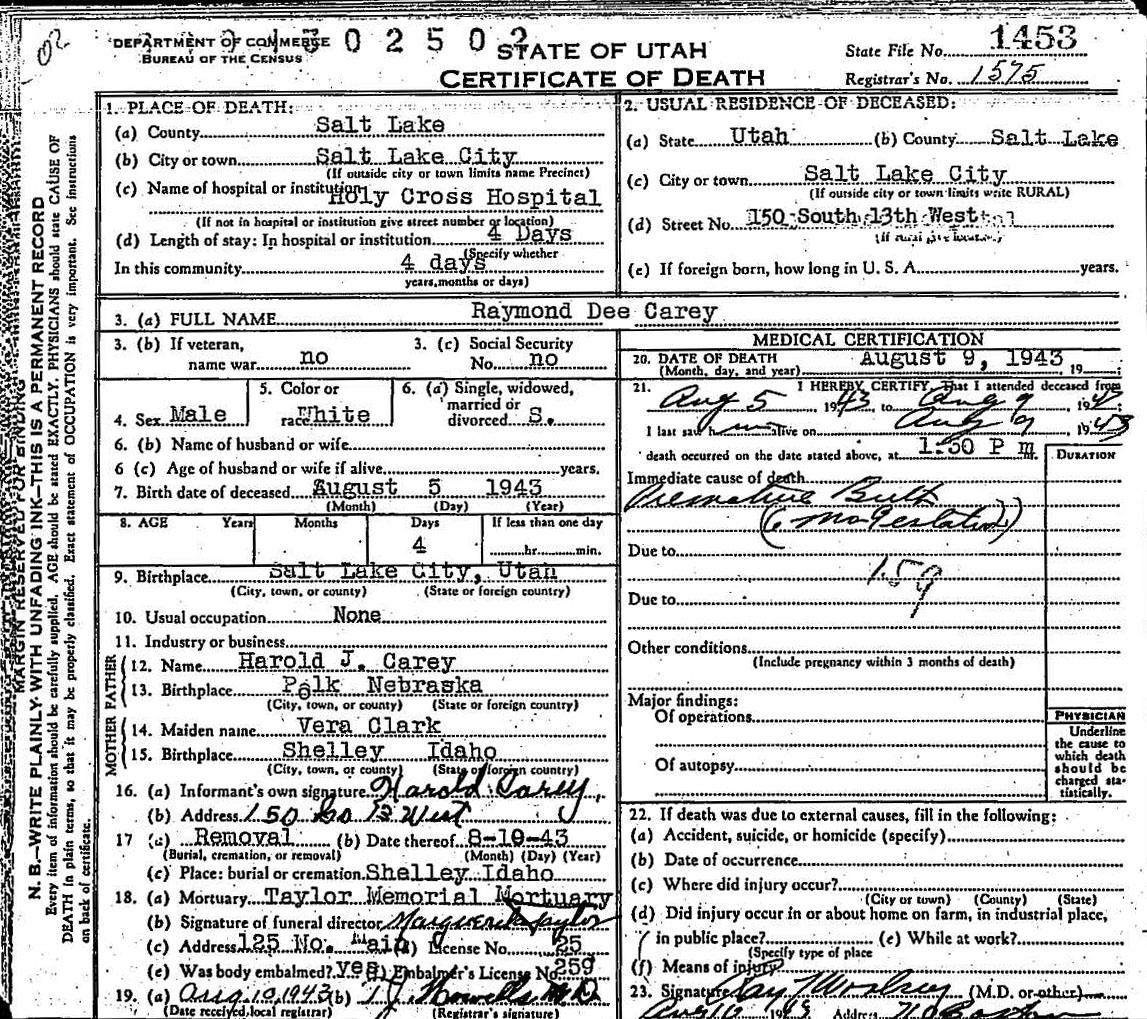 DEPARTMENT OF COMMERCE
BUREAU OF THE CENSUS
0 2 5 0 2
STATE OF UTAH
CERTIFICATE OF DEATH
State File No. 1453
Registrar's No. 1575
N. B.—WRITE PLAINLY WITH UNFADING INK—THIS IS A PERMANENT RECORD
MARGIN RESERVED FOR BINDING
Every item of information should be carefully supplied. AGE should be stated EXACTLY. PHYSICIANS should state CAUSE OF
DEATH in plain terms, so that it may be properly classified. Exact statement of OCCUPATION is very important. See instructions
on back of certificate.
1. PLACE OF DEATH:
(a) County Salt Lake
(b) City or town Salt Lake City
(If outside city or town limits name Precinct)
(c) Name of hospital or institution Holy Cross Hospital
(If not in hospital or institution give street number or location)
(d) Length of stay: In hospital or institution 4 Days
(Specify whether
In this community 4 days
years, months or days)
2. USUAL RESIDENCE OF DECEASED:
(a) State Utah (b) County Salt Lake
(c) City or town Salt Lake City
(If outside city or town limits write RURAL)
(d) Street No. 150 South 13th West
(If rural give location)
(e) If foreign born, how long in U. S. A. years.
3. (a) FULL NAME Raymond Dee Carey
3. (b) If veteran, name war no
3. (c) Social Security No. no
4. Sex Male
5. Color or race White
6. (a) Single, widowed, married or divorced S.
6. (b) Name of husband or wife
6 (c) Age of husband or wife if alive years.
7. Birth date of deceased August 5 1943
(Month) (Day) (Year)
8. AGE Years Months Days If less than one day
4 hr. min.
9. Birthplace Salt Lake City, Utah
(City, town, or county) (State or foreign country)
10. Usual occupation None
11. Industry or business
FATHER
12. Name Harold J. Carey
13. Birthplace Polk Nebraska
(City, town, or county) (State or foreign country)
MOTHER
14. Maiden name Vera Clark
15. Birthplace Shelley Idaho
(City, town, or county) (State or foreign country)
16. (a) Informant's own signature Harold Carey
(b) Address 150 So 13 West
17 (a) Removal (b) Date thereof 8-10-43
(Burial, cremation, or removal) (Month) (Day) (Year)
(c) Place: burial or cremation Shelley Idaho
18. (a) Mortuary Taylor Memorial Mortuary
(b) Signature of funeral director Marguerite Taylor
(c) Address 125 No. Main (d) License No. 25
(e) Was body embalmed? yes (f) Embalmer's License No. 259
19. (a) Aug 10, 1943 (b) T J Howells M.D.
(Date received local registrar) (Registrar's signature)
MEDICAL CERTIFICATION
20. DATE OF DEATH August 9, 1943
(Month, day, and year) 19
21. I HEREBY CERTIFY, That I attended deceased from
Aug 5 1943 to Aug 9 1943
I last saw him alive on Aug 9 1943
death occurred on the date stated above, at 1:30 P m.
DURATION
Immediate cause of death
Premature Birth
(6 mo gestation)
Due to
159
Due to
Other conditions
(Include pregnancy within 3 months of death)
Major findings:
Of operations
Of autopsy
PHYSICIAN
Underline
the cause to
which death
should be
charged sta-
tistically.
22. If death was due to external causes, fill in the following:
(a) Accident, suicide, or homicide (specify)
(b) Date of occurrence
(c) Where did injury occur?
(City or town) (County) (State)
(d) Did injury occur in or about home on farm, in industrial place,
in public place? (e) While at work?
(Specify type of place
(f) Means of injury
23. Signature Ray T Woolsey (M.D. or other)
Aug 10 1943 Address